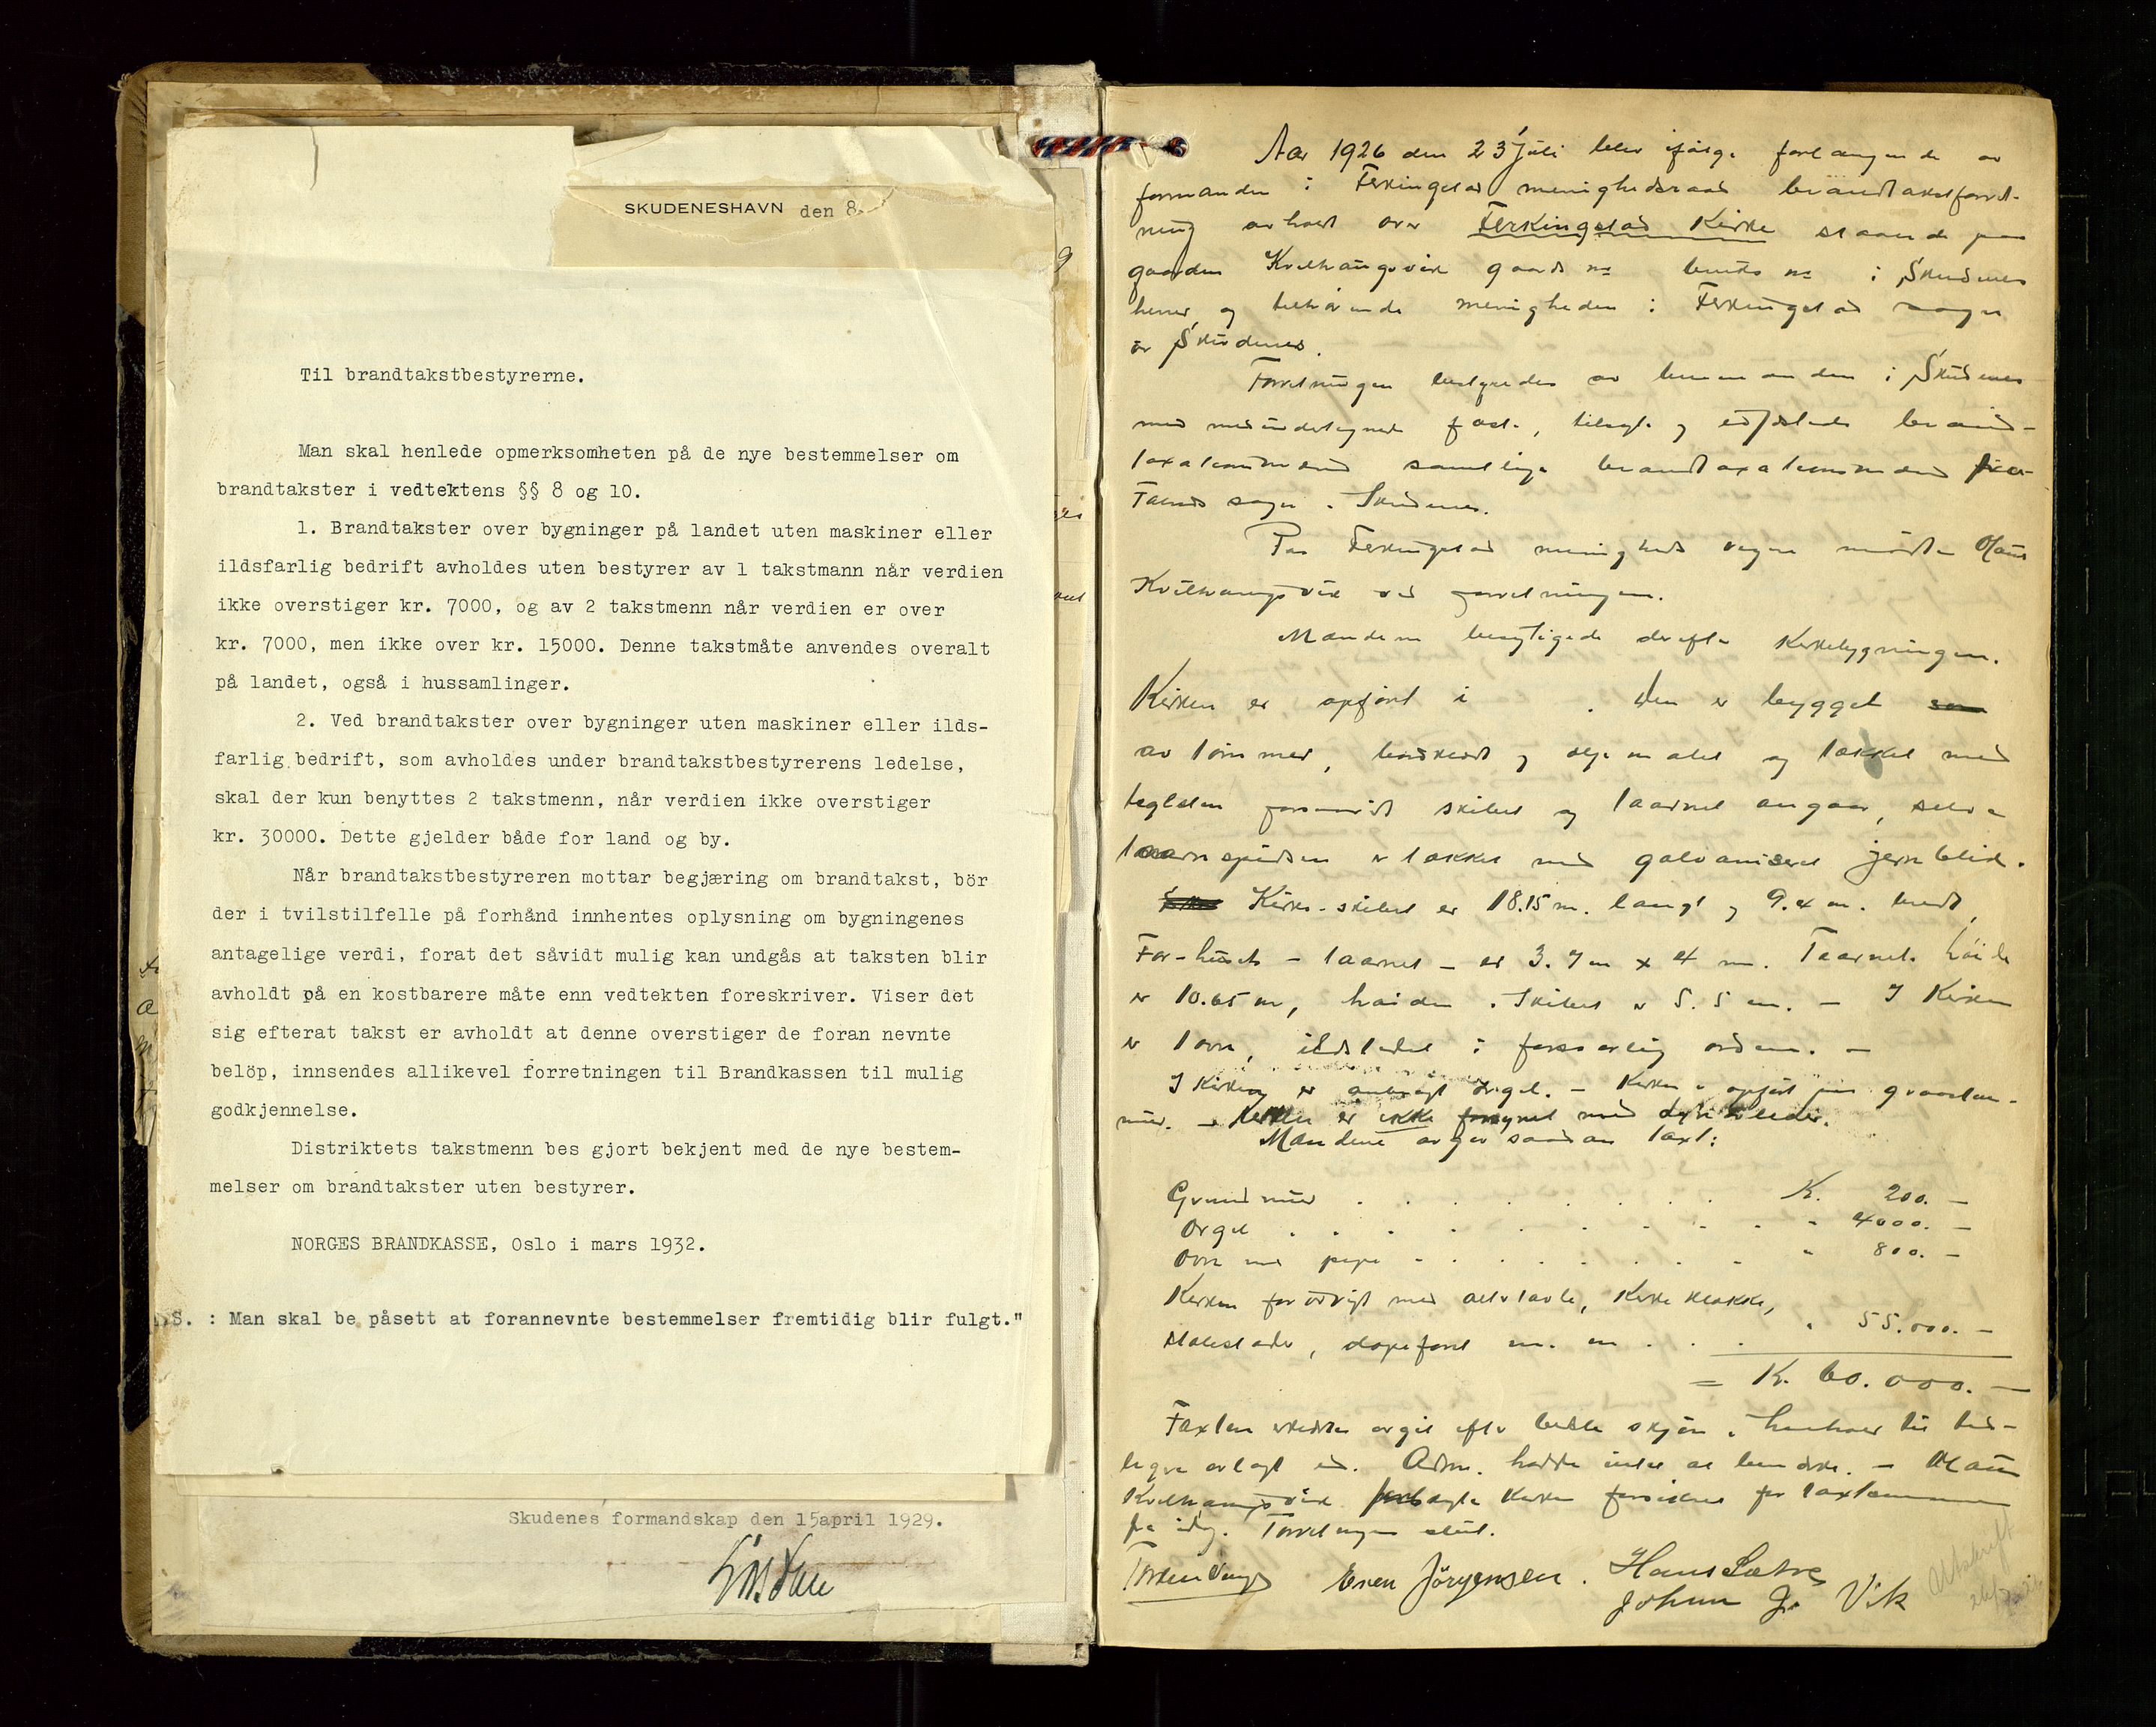 SKUDENESHAVN den 8
Til brandtakstbestyrerne.
Man skal henlede opmerksomheten på de nye bestemmelser om
brandtakster i vedtektens §§ 8 og 10.
1. Brandtakster over bygninger på landet uten maskiner eller
ildsfarlig bedrift avholdes uten bestyrer av 1 takstmann når verdien
ikke overstiger kr. 7000, og av 2 takstmenn når verdien er over
kr. 7000, men ikke over kr. 15000. Denne takstmåte anvendes overalt
på landet, også i hussamlinger.
2. Ved brandtakster over bygninger uten maskiner eller ilds-
farlig bedrift, som avholdes under brandtakstbestyrerens ledelse,
skal der kun benyttes 2 takstmenn, når verdien ikke overstiger
kr. 30000. Dette gjelder både for land og by.
Når brandtakstbestyreren mottar begjæring om brandtakst, bör
der i tvilstilfelle på forhånd innhentes oplysning om bygningenes
antagelige verdi, forat det såvidt mulig kan undgås at taksten blir
avholdt på en kostbarere måte enn vedtekten foreskriver. Viser det
sig efterat takst er avholdt at denne overstiger de foran nevnte
belöp, innsendes allikevel forretningen til Brandkassen til mulig
godkjennelse.
Distriktets takstmenn bes gjort bekjent med de nye bestem-
melser om brandtakster uten bestyrer.
NORGES BRANDKASSE, Oslo i mars 1932.
S. : Man skal be påsett at forannevnte bestemmelser fremtidig blir fulgt."
Skudenes formandskap den 15april 1929.
Aar 1926 den 23 Juli blev ifölge forlangende av
formanden i Ferkingstad menighedsraad brandtaxtforret-
ning avholdt over Ferkingstad Kirke staaende paa
gaarden Kvilhaugsvik gaards no bruks no i Skudenes
herred og tilhörende menigheden i Ferkingstad sogn
av Skudenes.
Forretningen bestyredes av lensmanden i Skudenes
med medundertegnede faste, tilsagte og edfæstede brand-
taxationsmænd samtlige brandtaxationsmænd fra
Falnes sogn i Skudenes.
Paa Ferkingstad menigheds vegne mödte Hans
Kvilhaugsvik ved forretningen.
Mændene besigtigede derefter Kirkebygningen.
Kirken er opfört i . Den er bygget som
av tömmer, bordklædt og oljemalet og tækket med
teglsten forsaavidt skibet og taarnet angaar, selve
taarnspidsen er tækket med galvaniseret jernblik.
Kirke-skibet er 18.15 m. langt og 9.4 m. bredt,
For-huset - taarnet - er 3.7 m x 4 m. Taarnets höide
er 10.65 m, höiden i Skibet er 5.5 m. - I Kirken
er 1 ovn, ildstedet i forsvarlig orden. -
I Kirken er anbragt Orgel. - Kirken er opfört paa graasten-
mur. - Kirken er ikke forsynet med lynavleder.
Mændene avgav saadan taxt:
Grundmur . . . . . . . . K. 200. -
Orgel . . . . . . . . " 4000. -
Ovn med pipe . . . . . . . " 800. -
Kirken forövrigt med altertavle, Kirkeklokke,
stolestader, döpefont m. m . . . " 55.000. -
= K. 60.000. -
Taxten erklæredes avgit efter bedste skjön i henhold til tid-
ligere avlagt ed. Adm. hadde intet at bemerke. - Hans
Kvilhaugsvik forlangte Kirken forsikret for taxtsummen
fra idag. Forretningen slut.
Even Jörgensen. Hans Sætre
Johan J. Vik
Utskrift